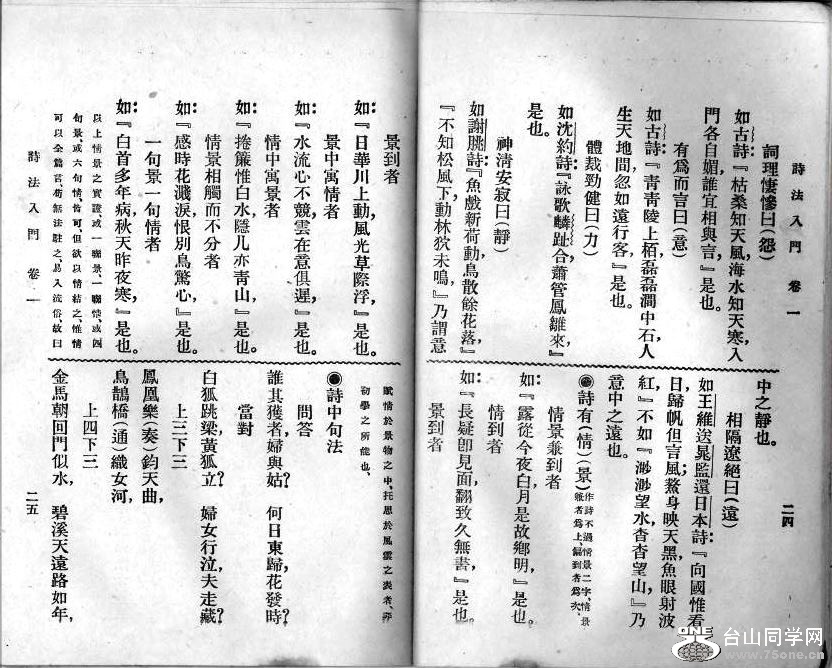 詩法入門 卷一
二四
詞理悽慘曰(怨)
如古詩『枯桑知天風,海水知天寒,入
門各自媚,誰宜相與言,』是也。
有爲而言曰(意)
如古詩『靑靑陵上栢,磊磊澗中石,人
生天地間,忽如遠行客』是也。
體裁勁健曰(力)
如沈約詩『詠歌麟趾合,蕭管鳳雛來』
是也。
神淸安寂曰(靜)
如謝朓詩『魚戲新荷動,鳥散餘花落』
『不知松風下動,林狖未鳴,』乃謂意
中之靜也。
相隔遼絕曰(遠)
如王維送晁監還日本詩『向國惟看
日,歸帆但言風;鰲身映天黑,魚眼射波
紅』不如『渺渺望水,杳杳望山』乃
意中之遠也。
◉詩有(情)(景)
作詩不過情景二字,情景
兼者爲上,偏到者爲次。
情景兼到者
如:『露從今夜白,月是故鄉明,』是也。
情到者
如:『長疑卽見面,翻致久無書』是也。
景到者
景到者
如:『日華川上動,風光草際浮,』是也。
景中寓情者
如:『水流心不競,雲在意俱遲,』是也。
情中寓景者
如:『捲簾惟白水,隱几亦靑山,』是也。
情景相觸而不分者
如:『感時花濺淚,恨別鳥驚心,』是也。
一句景一句情者
如:『白首多年病,秋天昨夜寒,』是也。
以上情景之實證、或一聯景、一聯情、或四
句景、或六句情、皆可但欲以情結之、惟情
可以全篇言、苟無法駐之、易入流俗、故曰
賦情於景物之中、托思於風雲之表者、非
初學之所能也、
◉詩中句法
問答
誰其獲者,婦與姑? 何日東歸,花發時?
當對
白狐跳梁,黃狐立? 婦女行泣,夫走藏?
上三下三
鳳凰樂(奏)鈞天曲,
烏鵲橋(通)織女河,
上四下三
金馬朝回門似水, 碧溪天遠路如年,
詩法入門 卷一
二五
ONE
台山同学网
www.75one.cn